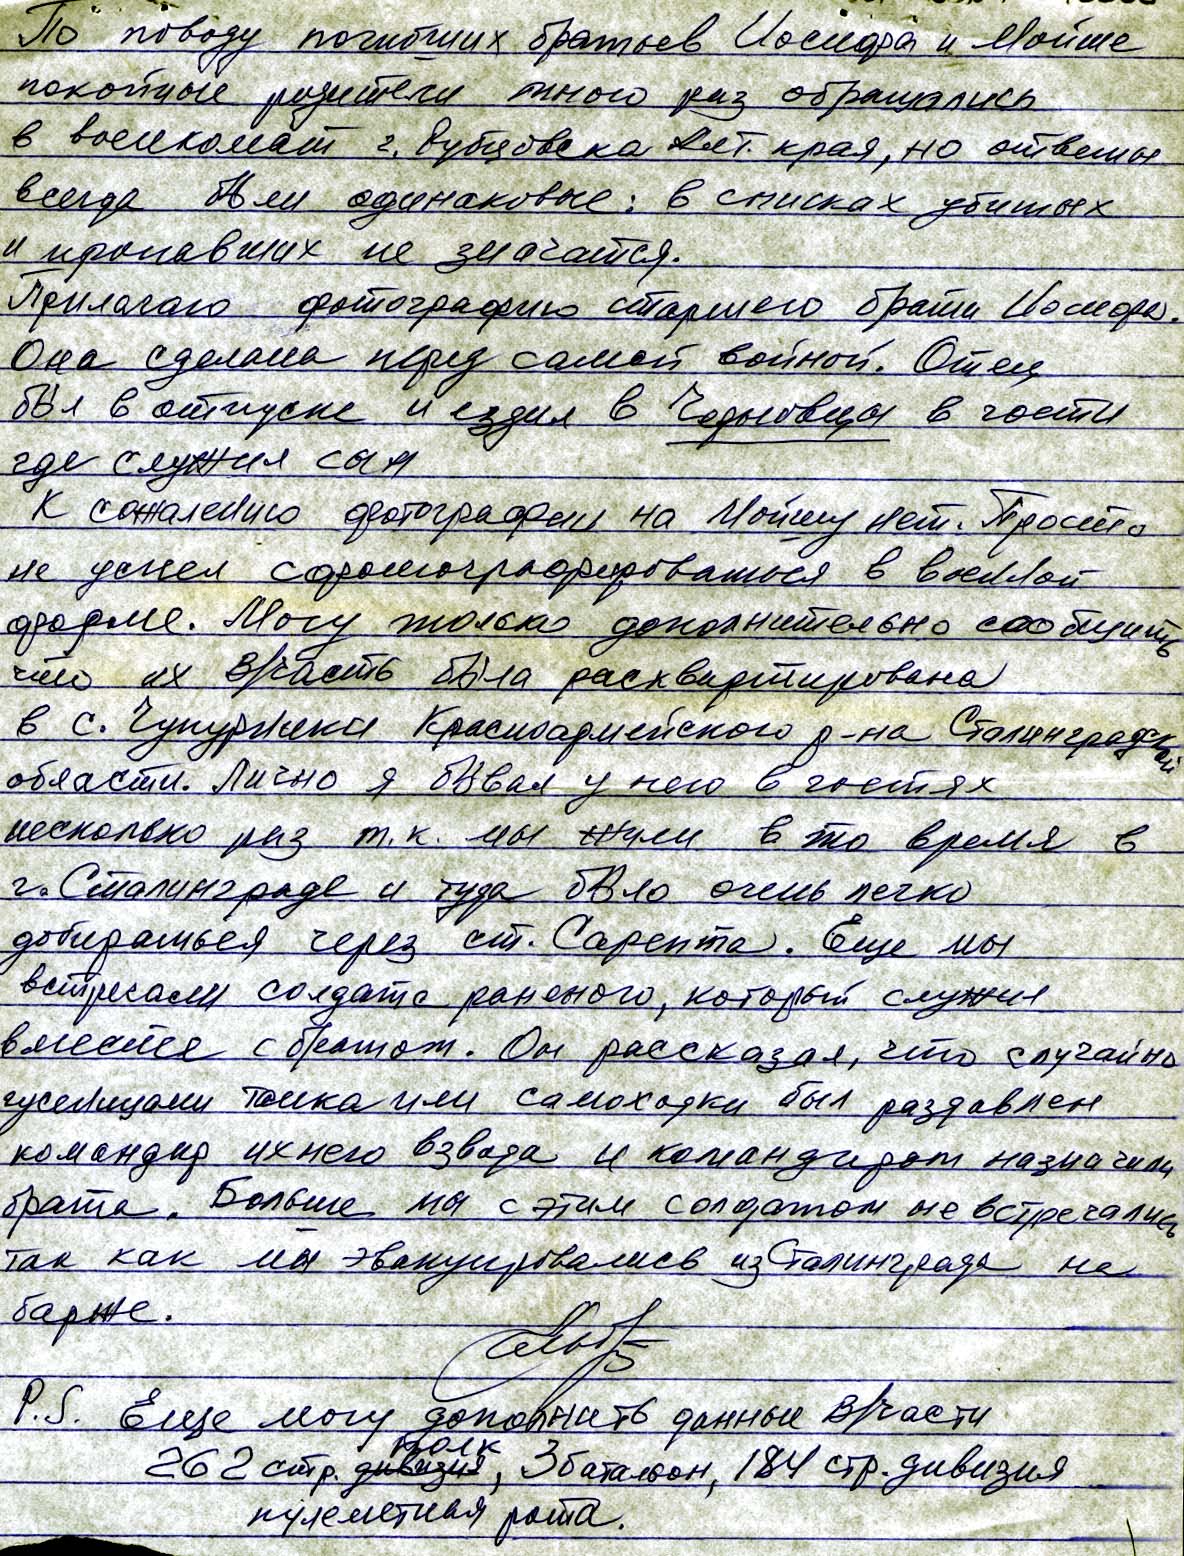 По поводу погибших братьев Иосифа и Мойше
покойные родители много раз обращались
в военкомат г. Рубцовска Алт. края, но ответы
всегда были одинаковые: в списках убитых
и пропавших не значатся.
Прилагаю фотографию старшего брата Иосифа.
Она сделана перед самой войной. Отец
был в отпуске и ездил в Черновцы в гости
где служил сын
К сожалению фотографии на Мойшу нет. Просто
не успел сфотографироваться в военной
форме. Могу только дополнительно сообщить
что их в/часть была расквартирована
в с. Чупурники Красноармейского р-на Сталинградской
области. Лично я бывал у него в гостях
несколько раз т.к. мы жили в то время в
г. Сталинграде и туда было очень легко
добираться через ст. Сарепта. Еще мы
встречали солдата раненого, который служил
вместе с братом. Он рассказал, что случайно
гусеницами танка или самоходки был раздавлен
командир ихнего взвода и командиром назначили
брата. Больше мы с этим солдатом не встречались
так как мы эвакуировались из Сталинграда на
барже.
P.S. Еще могу дополнить данные в/части
262 стр. дивизия полк, 3 батальон, 184 стр. дивизия
пулеметная рота.